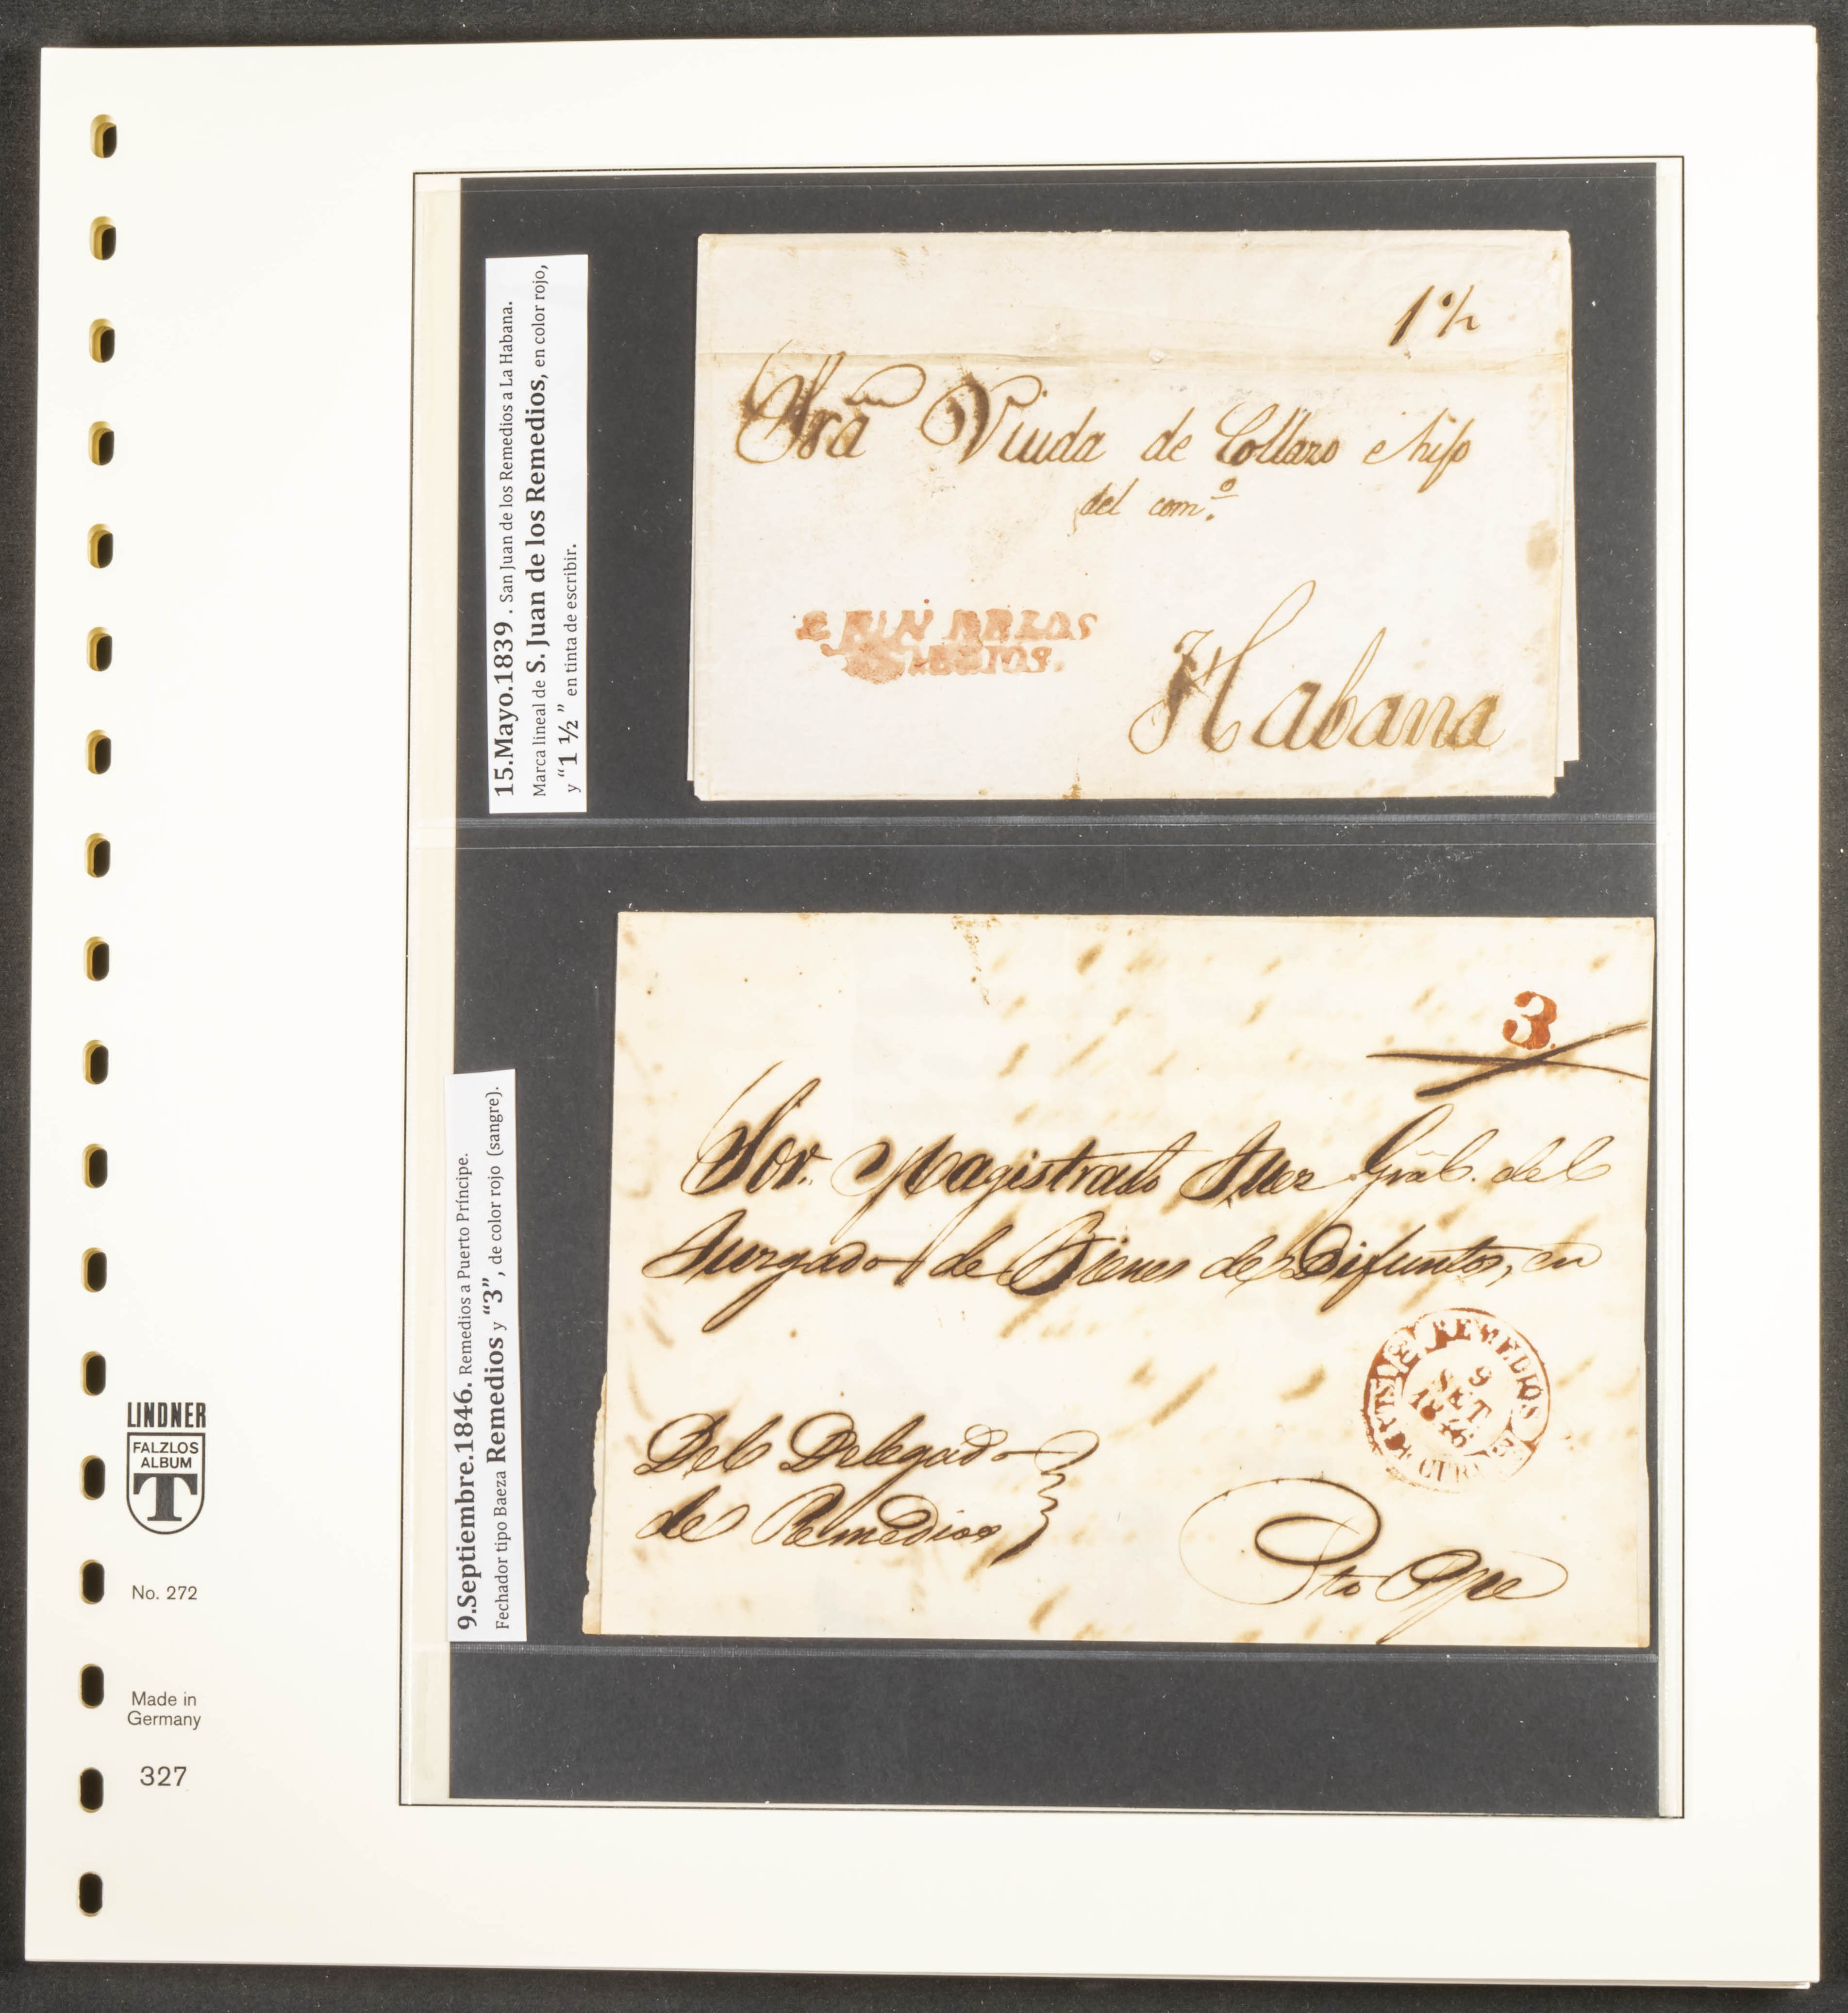 15.Mayo.1839 . San Juan de los Remedios a La Habana.
Marca lineal de S. Juan de los Remedios, en color rojo,
y "1 ½ " en tinta de escribir.
1 ½
Srā Viuda de Collazo e hijo
del com.º
Habana
9.Septiembre.1846. Remedios a Puerto Príncipe.
Fechador tipo Baeza Remedios y "3", de color rojo (sangre).
3
Sor. Magistrado Juez Gral. del
Juzgado de Bienes de Difuntos, en
REMEDIOS
9
SET
1846
Del Delegado
de Remedios
Pto Ppe
LINDNER
FALZLOS
ALBUM
T
No. 272
Made in
Germany
327